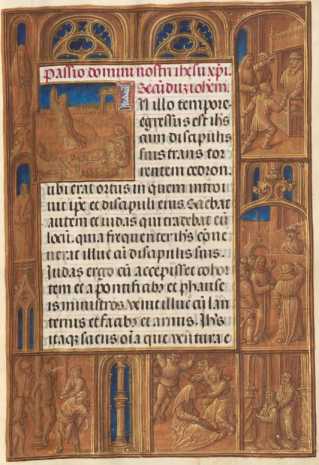 Passio domini nostri ihesu xpi.
Secūdum iohem.
In illo tempore
egressus est ihs
cum discipulis
suis trans tor
rentem cedron.
ubi erat ortus in quem introi
uit ipe et discipuli eius. Sciebat
autem et iudas qui tradebat eū
locū. quia frequenter ihs cōue
nerat illuc cū discipulis suis.
Iudas ergo cū accepisset cohor
tem et a pontificibz et phariseis
ministros. venit illuc cū lan
ternis et facibz et armis. Ihs
itaqz sciens oīa que vētura e